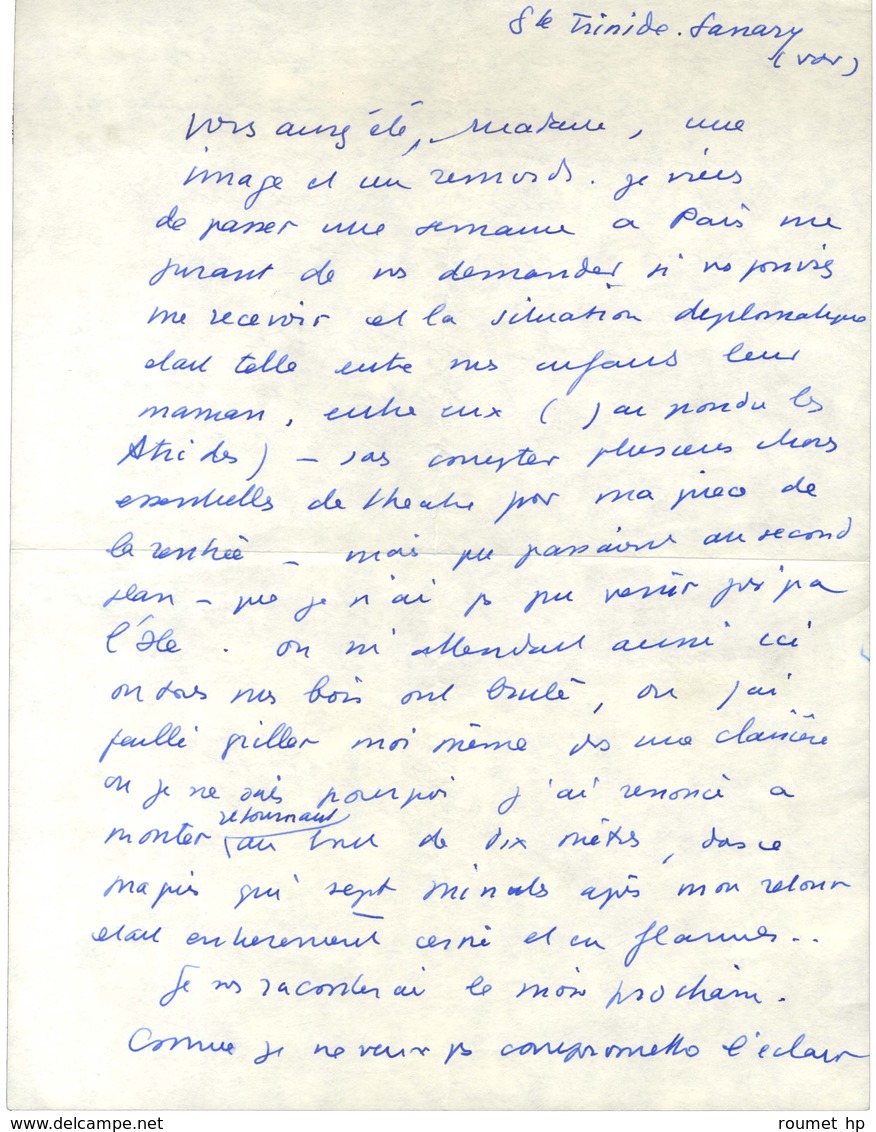 Ste Trinide. Sanary
(var)
vous aurez été, Madame, une
image et un remords. je viens
de passer une semaine a Paris me
jurant de vs demander si vs pouviez
me recevoir et la situation diplomatique
etait telle entre mes enfants leur
maman, entre eux ( j'ai pondu les
Atrides) - sans compter plusieurs choses
essentielles de theatre pour ma piece de
la rentrée - mais qui passaient au second
plan - que je n'ai ps pu venir jusqu'a
l'Ile. on m'attendait aussi ici
ou tous mes bois ont brulé, ou j'ai
failli griller moi même ds une clairière
ou je ne sais pourquoi j'ai renoncé a
monter retournant au bout de dix mètres, dans ce
maquis qui sept minutes après mon retour
etait entierement cerné et en flammes..
Je vs raconterai le mois prochain.
Comme je ne veux ps compromettre l'eclair
roumet hp
www.delcampe.net